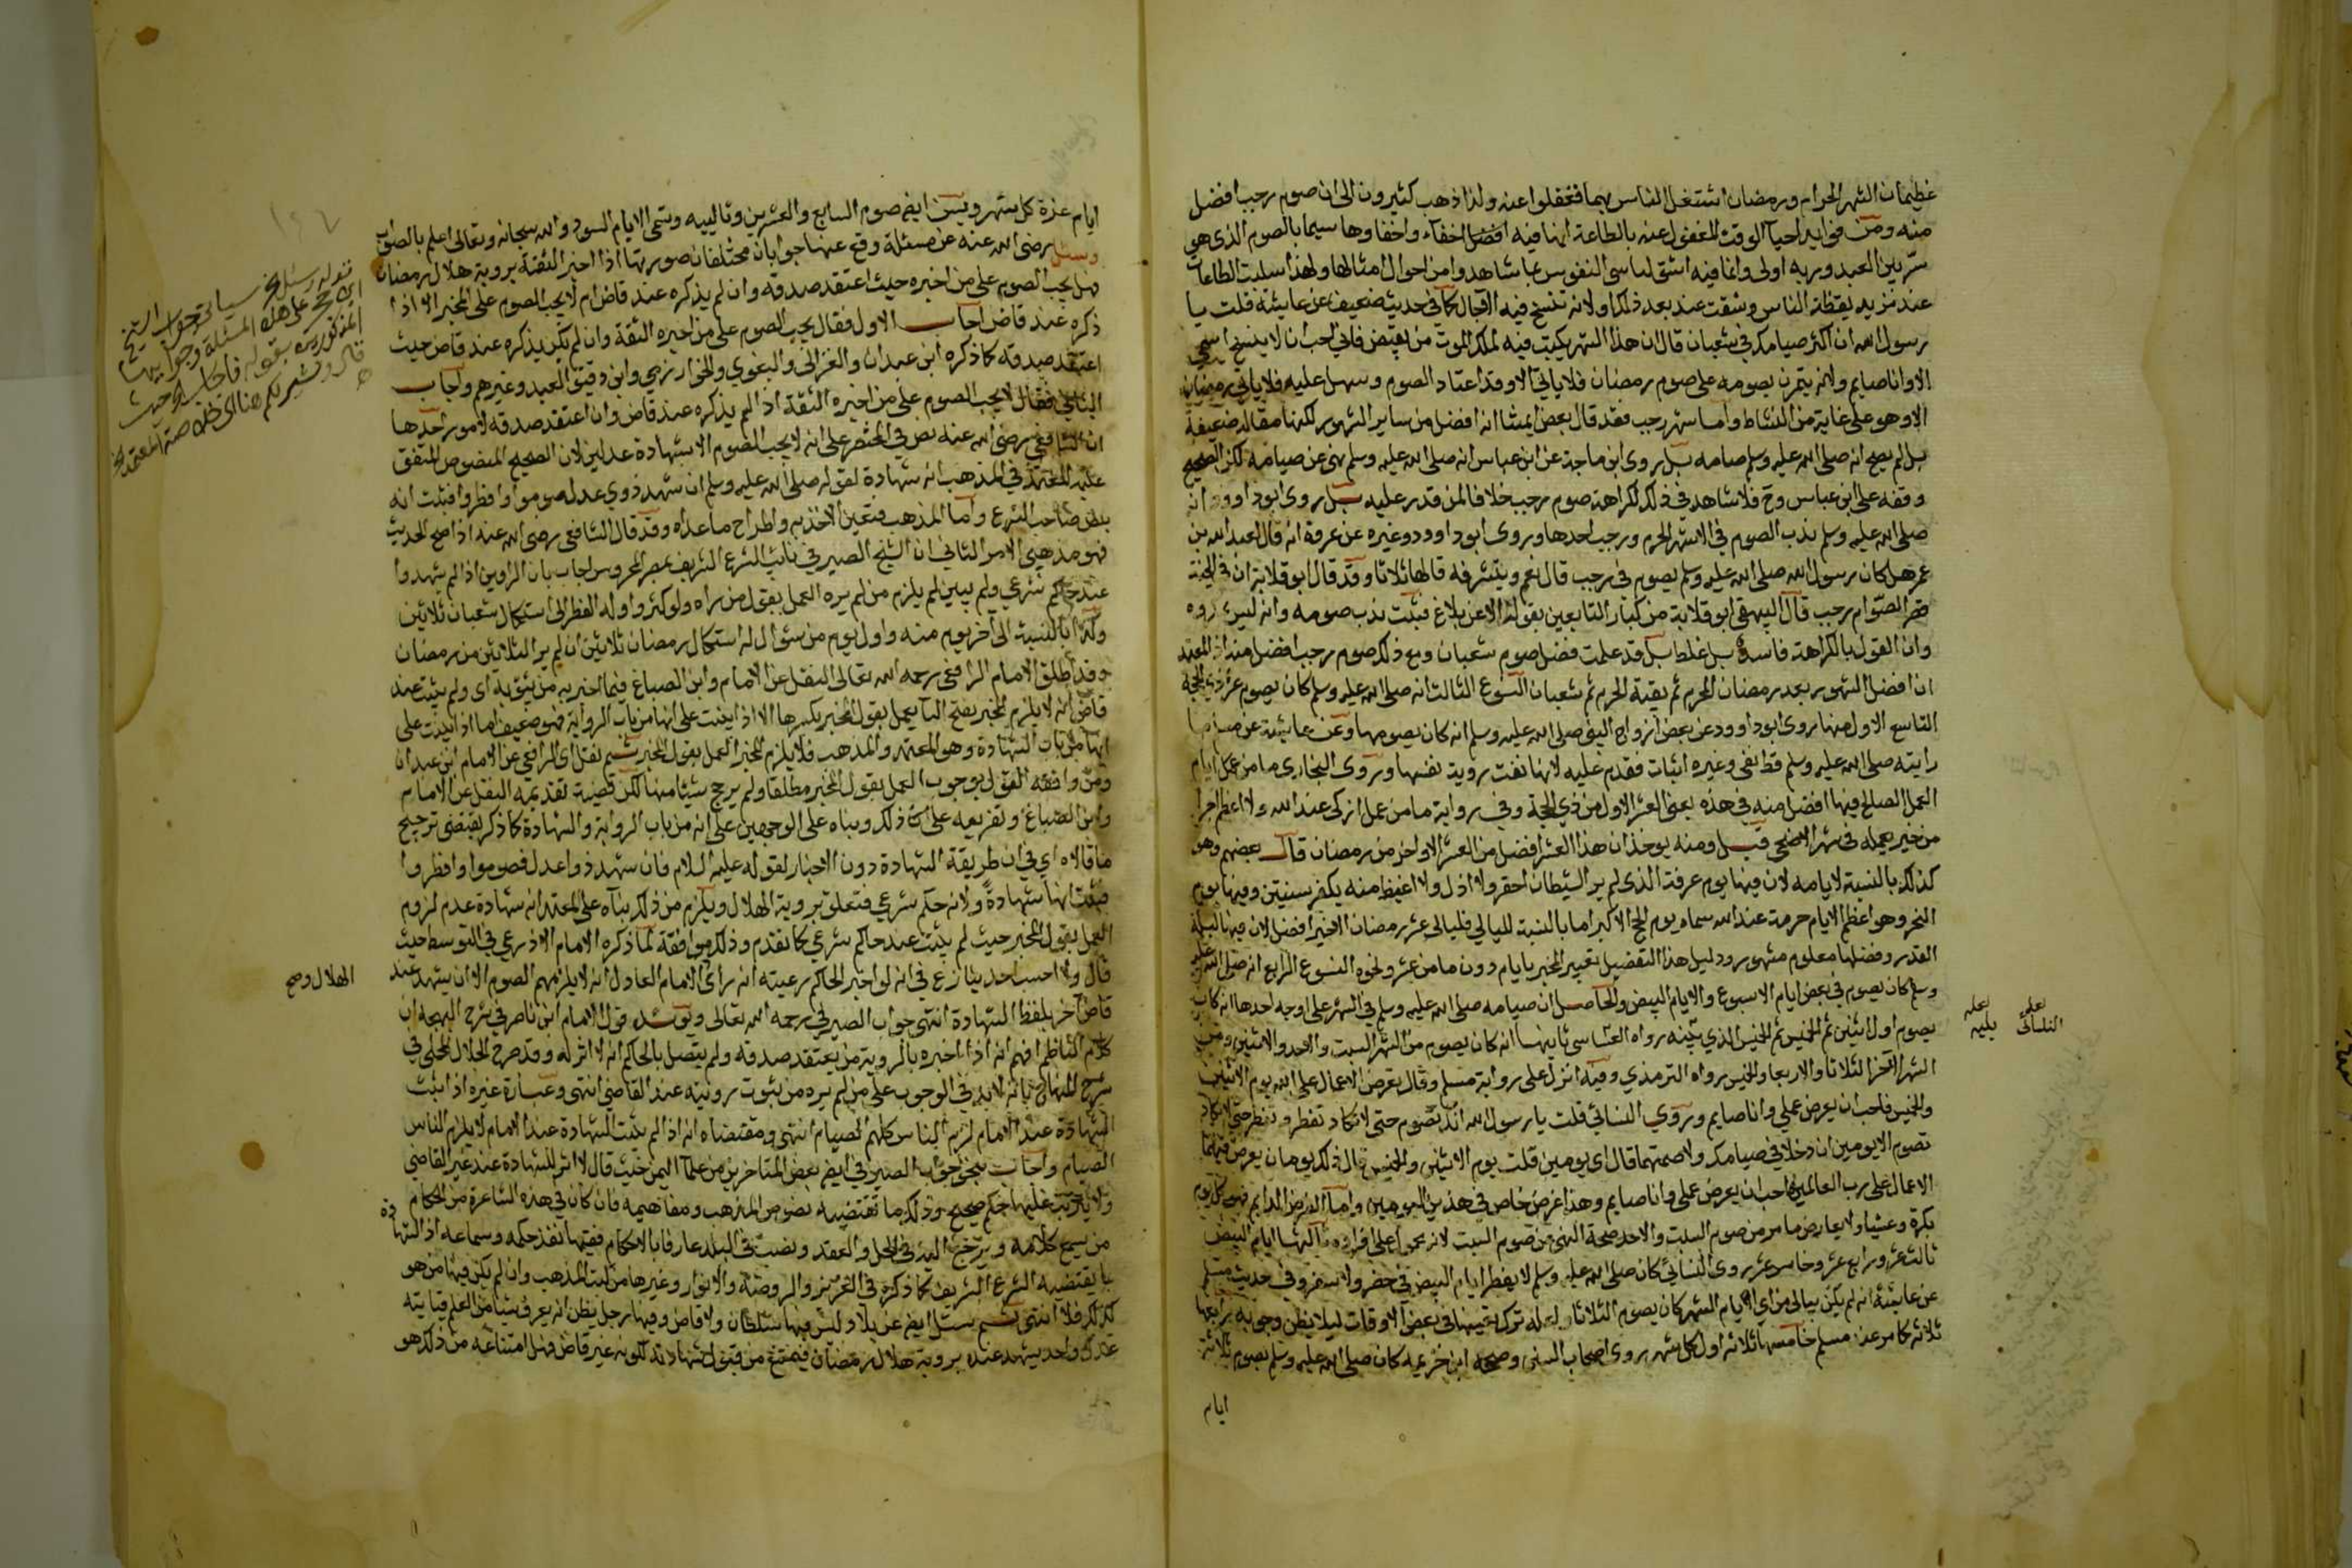 عظيمان الشهر الحرام ورمضان اشتغل الناس بهما فغفلوا عنه ولذا ذهب كثيرون الى ان صوم رجب افضل
منه ومن فوايد احياء الوقت المغفول عنه بالطاعة انها فيه افضل اخفاء واخفاوها سيما بالصوم الذي هو
سر بين العبد وربه اولى وانها فيه اشق لتاسي النفوس بما تشاهد وا من احوال امثالها ولهذا سهلت الطاعات
عند تزيد يقظة الناس وشقت عند بعد ذلك ولانه تنسخ فيه الآجال كما في حديث ضعيف عن عايشة قلت يا
رسول الله ان اكثر صيامك في شعبان قال ان هذا الشهر يكتب فيه لملك الموت من يقبض فاني احب ان لا ينسخ اسمي
الا وانا صايم ولانه يتمرن بصومه على صوم رمضان فلا ياتي الا وقد اعتاد الصوم وسهل عليه فلا ياتي رمضان
الا وهو على غاية من النشاط واما شهر رجب فقد قال بعض ايمتنا انه افضل من ساير الشهور لكنها مقالة ضعيفة
بل لم يصح انه صلى الله عليه وسلم صامه بل روى ابن ماجة عن ابن عباس انه صلى الله عليه وسلم نهى عن صيامه لكن الصحيح
وقفه على ابن عباس وح فلا شاهد في ذلك لكراهة صوم رجب خلافا لمن قدر عليه بل روى ابو داوود انه
صلى الله عليه وسلم ندب الصوم في الاشهر الحرم ورجب احدها وروى ابو داوود وغيره عن عروة انه قال لعبد الله بن
عمر هل كان رسول الله صلى الله عليه وسلم يصوم في رجب قال نعم ويشرفه قالها ثلاثا وقد قال ابو قلابة ان في الجنة
قصر الصوام رجب قال البيهقي ابو قلابة من كبار التابعين يقوله الا عن بلاغ فثبت ندب صومه وانه ليس
وان القول بالكراهة فاسد بل غلط بل قد علمت فضل صوم شعبان ومع ذلك صوم رجب افضل منه اذ المعتمد
ان افضل الشهور بعد رمضان المحرم ثم بقية الحرم ثم شعبان النوع الثالث انه صلى الله عليه وسلم كان يصوم عشر ذي الحجة
التاسع الاول منها روى ابو داوود عن بعض ازواج النبي صلى الله عليه وسلم انه كان يصومها وعن عايشة
رايته صلى الله عليه وسلم قط انفى وغيره اثبات فقدم عليه لانها نفت روية نفسها وروى البخاري ما من عمل ايام
العمل الصالح فيها افضل منه في هذه يعني العشر الاول من ذي الحجة وفي رواية ما من عمل ازكى عند الله ولا اعظم اجرا
من خير يعمله في عشر الاضحى قيل ومنه يوخذ ان هذا العشر افضل من العشر الاواخر من رمضان قال بعضهم وهو
كذلك بالنسبة لايامه لان فيها يوم عرفة الذي لم ير الشيطان احقر ولا اذل ولا اغيظ منه يكفر سنتين وفيها يوم
النحر وهو اعظم الايام حرمة عند الله سماه يوم الحج الاكبر اما بالنسبة لليالي فليالي عشر رمضان الاخير افضل لان فيها ليلة
القدر وفضلها معلوم مشهور ودليل هذا التفضيل تعبير الخبر بايام دون ما من عشر ونحوه النوع الرابع انه صلى الله عليه
وسلم كان يصوم في بعض ايام الاسبوع والايام البيض والحاصل ان صيامه صلى الله عليه وسلم في الشهر على اوجه احدها انه كان
يصوم اول اثنين ثم الخميس ثم الخميس الذي يليه رواه النساسى ثانيها انه كان يصوم من الشهر السبت والاحد والاثنين ومن
الشهر الآخر الثلاثا والاربعا والخميس رواه الترمذي وفيه انزل على رواية مسلم وقال تعرض الاعمال على الله يوم الاثنين
والخميس فاحب ان يعرض عملي وانا صايم وروى النسائي قلت يا رسول الله انك تصوم حتى لا تكاد تفطر وتفطر حتى لا تكاد
تصوم الا يومين ان دخلا في صيامك ولا صمتهما قال اي يومين قلت يوم الاثنين والخميس قال ذلك يومان يعرض فيهما
الاعمال على رب العالمين فاحب ان يعرض عملي وانا صايم وهذا عرض خاص في هذين اليومين واما العرض الدايم فهو كل يوم
بكرة وعشيا ولا يعارض ما مر من صوم السبت والاحد صحة النهي عن صوم السبت لانه محمول على افراده ثالثها ايام البيض
ثالث عشر ورابع عشر وخامس عشر روى النسائي كان صلى الله عليه وسلم لا يفطر ايام البيض في حضر ولا سفر وفي حديث مسلم
عن عايشة انه لم يكن يبالي من اي ايام الشهر كان يصوم الثلاثة ولعله ترك تعيينها في بعض الاوقات ليلا يظن وجوبه رابعها
ثلاثة كما مر عند مسلم خامسها ثلاثة اول كل شهر روى اصحاب السنن وصححه ابن خزيمة كان صلى الله عليه وسلم يصوم ثلاثة
ايام
لعله النسائى
لعله يليه
ايام غرة كل شهر ويسن ايضا صوم السابع والعشرين وتالييه وتسمى الايام السود والله سبحانه وتعالى اعلم بالصواب
وسئل رضي الله عنه عن مسئلة وقع عنها جوابان مختلفان صورتها اذا اخبر الثقة بروية هلال رمضان
فهل يجب الصوم على من اخبره حيث اعتقد صدقه وان لم يذكره عند قاض ام لا يجب الصوم على المخبر الا اذا
ذكره عند قاض اجاب الاول فقال يجب الصوم على من اخبره الثقة وان لم يكن يذكره عند قاض حيث
اعتقد صدقه كما ذكره ابن عبدان والغزالي والبغوي والخوارزمي وابن دقيق العيد وغيرهم واجاب
الثاني فقال لا يجب الصوم على من اخبره الثقة اذا لم يذكره عند قاض وان اعتقد صدقه لامور احدها
ان الشافعي رضي الله عنه نص في المختصر على انه لا يجب الصوم الا بشهادة عدلين لان الصحيح المنصوص المتفق
عليه المعتمد في المذهب انه شهادة لقوله صلى الله عليه وسلم ان شهد ذوي عدل صوموا وافطروا فثبت انه
بنص صاحب الشرع واما المذهب فتعين الاخذ به واطراح ما عداه وقد قال الشافعي رضي الله عنه اذا صح الحديث
فهو مذهبي الامر الثاني ان الشيخ الصيرفي نايب الشرع الشريف بمصر المحروس اجاب بان الراوين اذا لم يشهدوا
عند حاكم شرعي ولم يبين لم يلزم من لم يره العمل بقول من راه ولو كثروا وله الفطر الى استكمال شعبان ثلاثين
وكذا بالنسبة الى آخر يوم منه واول يوم من شوال له استكمال رمضان ثلاثين ان لم ير الثلاثين من رمضان
وقد اطلق الامام الرافعي رحمه الله تعالى النقل عن الامام وابن الصباغ فيما اخبر به من يثق به اي ولم يثبت عند
قاض انه لا يلزم المخبر بفتح الباء يعمل بقول المخبر بكسرها الا اذا بنيت على انها من باب الرواية فهو ضعيف اما اذا بنيت على
انها من باب الشهادة وهو المعتمد والمذهب فلا يلزم المخبر العمل بقول المخبر ثم نقل اي الرافعي عن الامام ابن عبدان
ومن وافقه القول بوجوب العمل بقول المخبر مطلقا ولم يرجح شيئا منها لكن قضية تقديمه النقل عن الامام
وابن الصباغ وتفريعه على ذلك وبناه على الوجهين على انه من باب الرواية والشهادة كما ذكر يقتضي ترجيح
ما قالاه اي في ان طريقة الشهادة دون الاخبار لقوله عليه السلام فان شهد ذوا عدل فصوموا وافطروا
فثبت انها شهادة ولانه حكم شرعي فتعلق بروية الهلال ويلزم من ذلك بناه على المعتمد انه شهادة عدم لزوم
العمل بقول المخبر حيث لم يثبت عند حاكم شرعي كما تقدم وذلك موافقة لما ذكره الامام الاذرعي في التوسط حيث
قال ولا احسب احدا ينازع في انه لو اخبر الحاكم رعيته انه رأى الامام العادل انه لا يلزمهم الصوم الا ان يشهد عند
قاض آخر بلفظ الشهادة انتهى جواب الصيرفي رحمه الله تعالى ويوئيده قول الامام ابن ناصر في شرح البهجه ان
كلام الناظم افهم انه اذا اخبره بالروية من يعتقد صدقه ولم يتصل بالحاكم انه لا اثر له وقد صرح الجلال المحلي في
شرح المنهاج بانه لا بد في الوجوب على من لم يره من ثبوت رؤيته عند القاضي انتهى وعبارة غيره اذا ثبت
الشهادة عند الامام لزم الناس كلهم الصيام انتهى ومقتضاه انه اذا لم يثبت الشهادة عند الامام لا يلزم الناس
الصيام واجاب بنحو جواب الصيرفي ايضا بعض المتاخرين من علماء اليمن حيث قال لا اثر للشهادة عند غير القاضي
ولا يترتب عليها حكم صحيح وذلك ما تقتضيه نصوص المذهب ومفاهيمه فان كان في هذه الشاغرة من الحكام
من يسمع كلامه ويرجع اليه في الحل والعقد ونصب في البلد عارفا بالاحكام فقيها نفذ حكمه وسماعه اذ الشهادة
بما يقتضيه الشرع الشريف كما ذكره في العزيز والروضة والانوار وغيرها من كتب المذهب وان لم يكن فيها من هو
كذلك فلا انتهى ثم سئل ايضا عن بلاد ليس فيها سلطان ولا قاض وفيها رجل يظن انه يعرف شيئا من العلم فياتيه
عدل واحد يشهد عنده بروية هلال رمضان فيمتنع من قبول شهادته لكونه غير قاض فهل امتناعه من ذلك هو
الهلال وصح